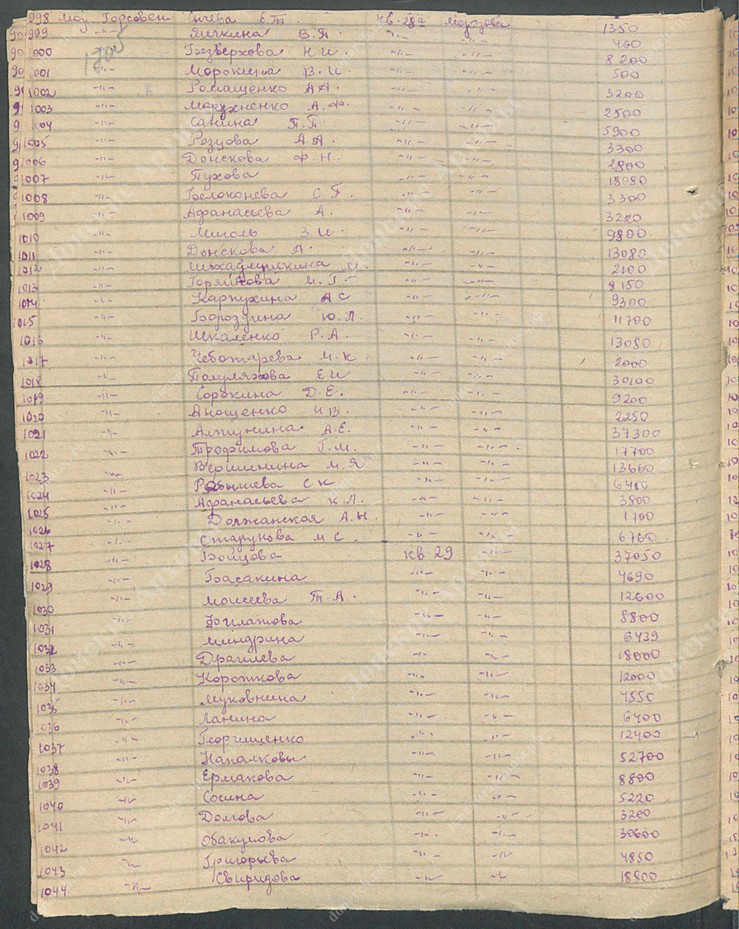 998 Мод Горсовет Сычева Е.Т. кв-28а Морозова 1350
999 -"- Бичкина В.П. -"- -"- 400
1000 -"- Безверхова Н.И. -"- -"- 8200
1001 -"- Морокина В.И. -"- -"- 500
1002 -"- Ромащенко А.А. -"- -"- 3200
1003 -"- Марухненко А.Ф. -"- -"- 2500
1004 -"- Санина Т.П. -"- -"- 5900
1005 -"- Резцова А.А. -"- -"- 3300
1006 -"- Донскова Ф.Н. -"- -"- 2800
1007 -"- Пухова -"- -"- 18080
1008 -"- Белоконева С.Г. -"- -"- 3300
1009 -"- Афанасьева А. -"- -"- 3220
1010 -"- Мигаль З.И. -"- -"- 9800
1011 -"- Донскова Л. -"- -"- 13080
1012 -"- -"- -"- 2100
1013 -"- Горяйнова М.Г. -"- -"- 8150
1014 -"- Карпухина А С -"- -"- 9300
1015 -"- Бороздина Ю.Л. -"- -"- 11700
1016 -"- Шкаленко Р.А. -"- -"- 13080
1017 -"- Чеботарева М.К. -"- -"- 2000
1018 -"- Полуляхова Е И -"- -"- 30100
1019 -"- Сорокина Д.Е. -"- -"- 9200
1020 -"- Анощенко Н В. -"- -"- 2250
1021 -"- Алтунина А.Е. -"- -"- 37300
1022 -"- Трофимова Г.М. -"- -"- 17700
1023 -"- Вершинина М.Я -"- -"- 13660
1024 -"- Рябышева С К -"- -"- 6410
1025 -"- Афанасьева К.Л. -"- -"- 3800
1026 -"- Должанская А.Н. -"- -"- 1700
1027 -"- Старунова М С. -"- -"- 6760
1028 -"- Бойцова кв 29 -"- 37050
1029 -"- Басакина -"- -"- 4690
1030 -"- Моисеева Т.А. -"- -"- 12600
1031 -"- Богматова -"- -"- 8800
1032 -"- Миндрина -"- -"- 6439
1033 -"- Драгилева -"- -"- 18000
1034 -"- Короткова -"- -"- 12000
1035 -"- Муковнина -"- -"- 7550
1036 -"- Ланина -"- -"- 6400
1037 -"- Георгиленко -"- -"- 12400
1038 -"- Напалковы -"- -"- 52700
1039 -"- Ермакова -"- -"- 8800
1040 -"- Сосина -"- -"- 5220
1041 -"- Долгова -"- -"- 3200
1042 -"- Абакумова -"- -"- 30600
1043 -"- Григорьева -"- -"- 4850
1044 -"- Свиридова -"- -"- 18800